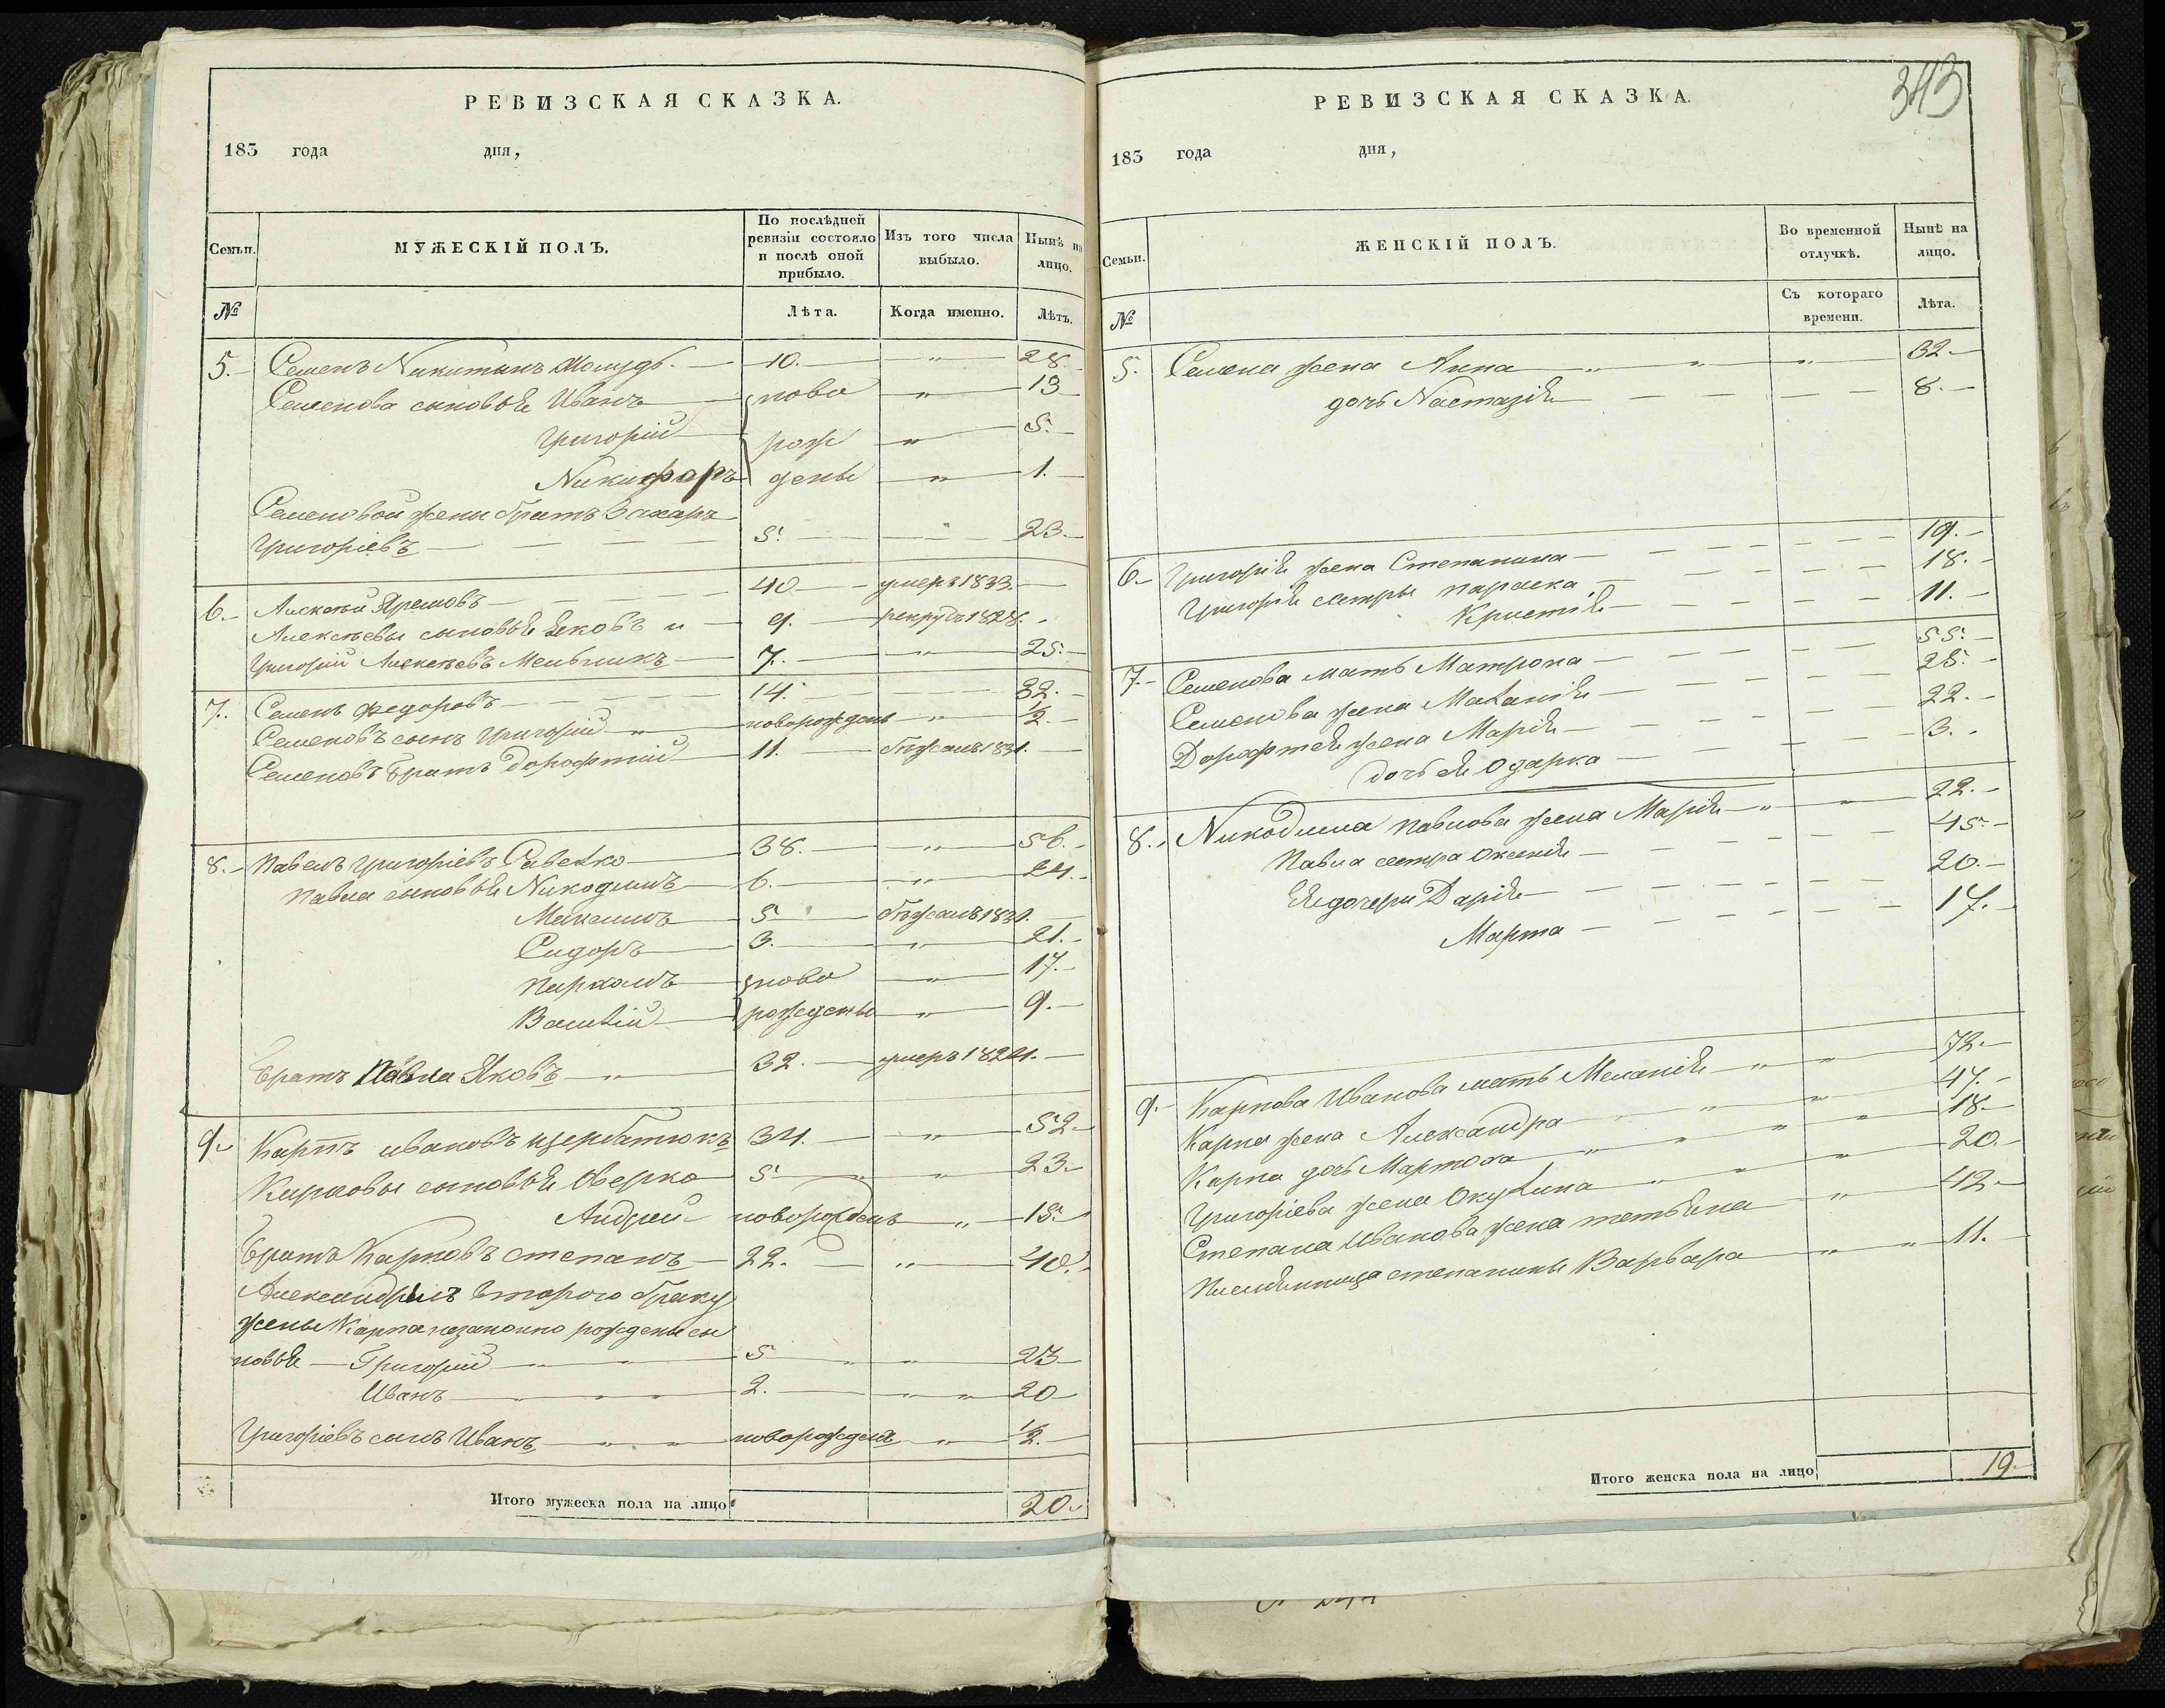 РЕВИЗСКАЯ СКАЗКА.
183 года дня,
Семьи. МУЖЕСКІЙ ПОЛЪ. По послѣдней ревизіи состояло и послѣ оной прибыло. Изъ того числа выбыло. Нынѣ на лицо.
№ Лѣта. Когда именно. Лѣтъ.
5. Семенъ Никитинъ 10. " 28.
Семенова сыновья Иванъ ново " 13
Григорій рож " 5.
Никифоръ дены " 1.
Семеновой жены братъ Захаръ
Григоріевъ 5. 23.
6. Алексѣй Яремовъ 40 умеръ 1833.
Алексѣевы сыновья Яковъ и 9. рекрутъ 1828.
Григорій Алексѣевъ Мельникъ 7. " 25.
7. Семенъ Федоровъ 14. 32.
Семеновъ сынъ Григорій " новорожденъ " 1/2.
Семеновъ братъ Дорофтей 11. бѣжалъ 1831.
8. Павелъ Григоріевъ Савенко 38. " 56.
Павла сыновья Никодимъ 6. " 24.
Максимъ 5 бѣжалъ 1831.
Сидоръ 3. " 21.
ново " 17.
Василій рождены " 9.
Братъ Павла Яковъ " 32. умеръ 1824.
9. Карпъ Ивановъ Щербатюкъ 34. " 52
Карповы сыновья Оверко 5 " " 23.
Андрей новорожденъ " 15.
Братъ Карповъ Степанъ 22. " 40.
Александры изъ втораго браку
жены Карпа незаконно рождены сы
новья Григорій " " 5 " " 23
Иванъ " " 2. " " 20
Григоріевъ сынъ Иванъ " " новорожденъ " 1/2.
Итого мужеска пола на лицо 20.
343
РЕВИЗСКАЯ СКАЗКА.
183 года дня,
Семьи. ЖЕНСКІЙ ПОЛЪ. Во временной отлучкѣ. Нынѣ на лицо.
№ Съ котораго времени. Лѣта.
5. Семена жена Анна " " " 32.
дочь Настазія 8.
6. Григорія жена Степанида 19.
Григорія сестры Параска 18.
Кристія 11.
7. Семенова мать Матрона 55.
Семенова жена Маланія 25.
Дорофтея жена Марія 22.
дочь ея Одарка 3.
8. Никодима Павлова жена Марія " " 22.
Павла сестра Оксенія 45.
Ея дочери Дарія 20.
Марта 17.
9. Карпова Иванова мать Меланія " " 72.
Карпа жена Александра " " " 47.
Карпа дочь Мартоха " " " " 18.
Григоріева жена Окулина " " " 20.
Степана Иванова жена Тетьяна " 42.
Степанины Варвара " " 11.
Итого женска пола на лицо 19.